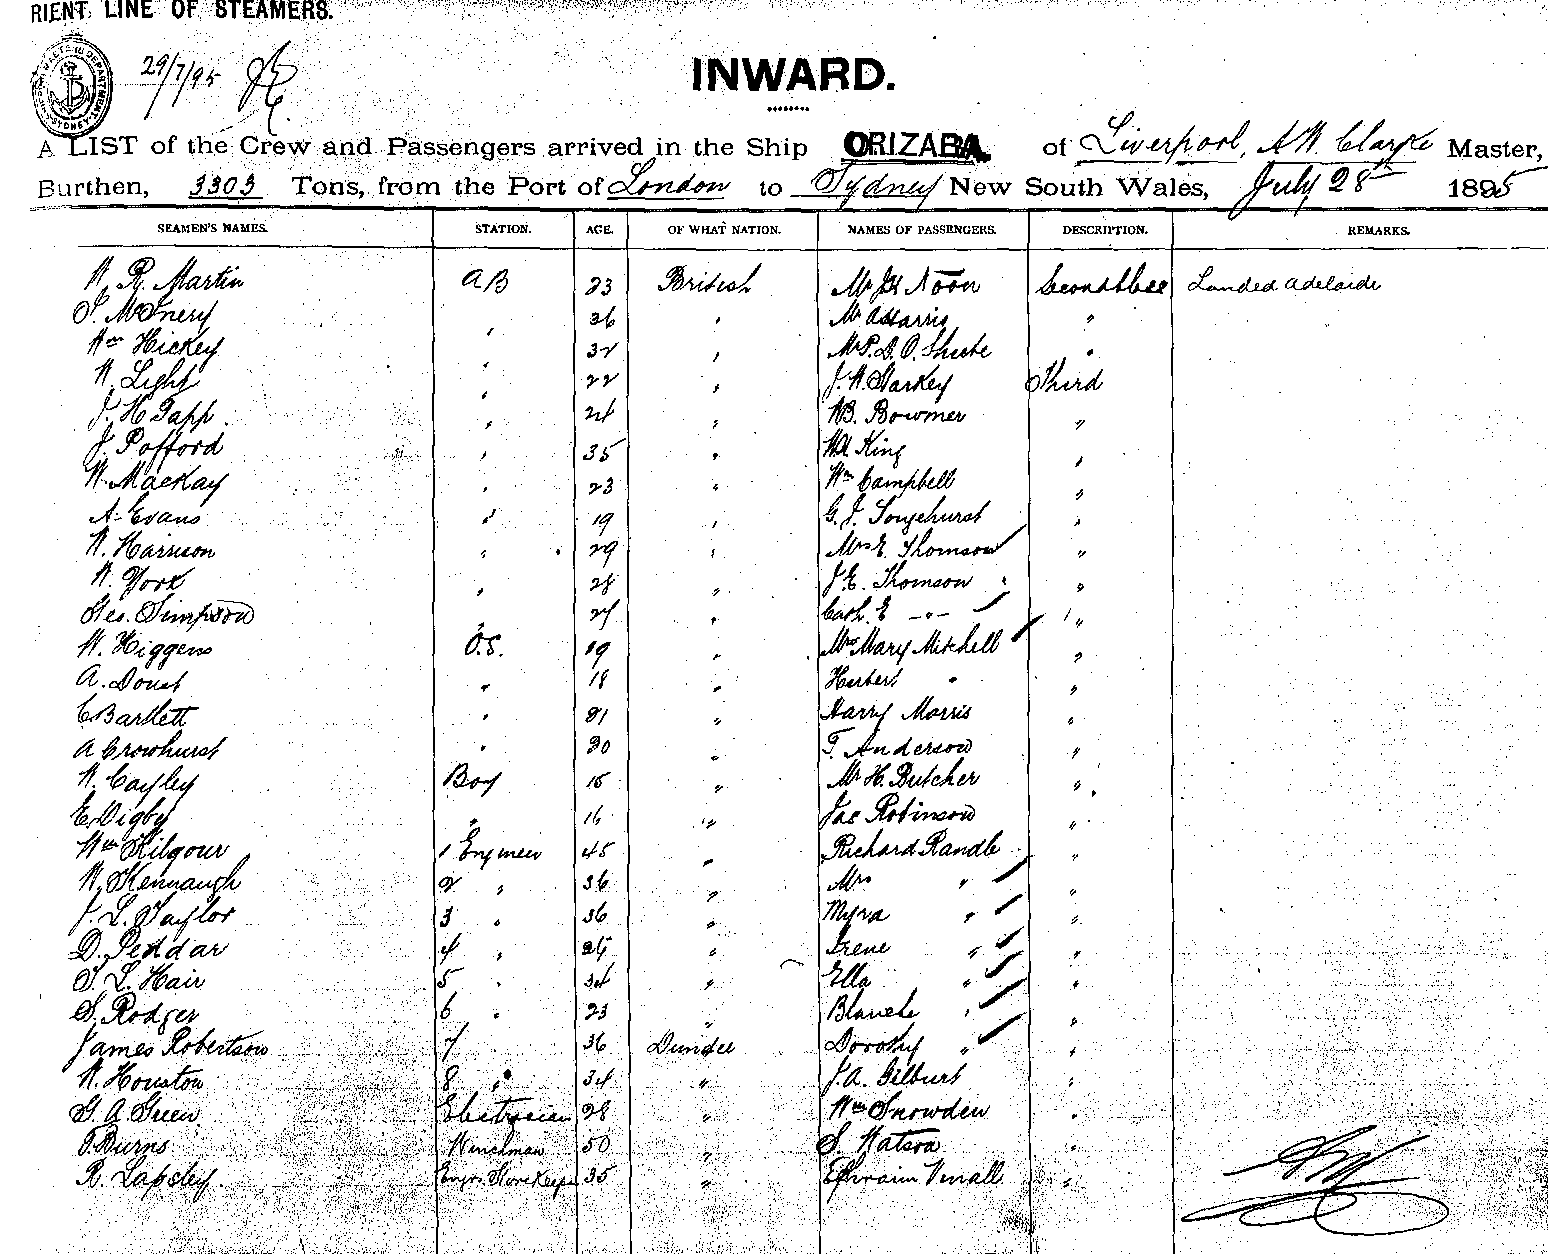 RIENT LINE OF STEAMERS.
29/7/95
INWARD.
A LIST of the Crew and Passengers arrived in the Ship ORIZABA of Liverpool, A W. Clarke Master,
Burthen, 3303 Tons, from the Port of London to Sydney New South Wales, July 28th 1895
SEAMEN'S NAMES. STATION. AGE. OF WHAT NATION. NAMES OF PASSENGERS. DESCRIPTION. REMARKS.
W. R. Martin AB 23 British Mr JH Noon Second Class Landed Adelaide
McInery " 36 " Mr A Harris "
Wm Hickey " 32 " "
W. Light " 22 " J. W. Starkey Third
J. H. Tapp " 24 " WB. Bowmer "
J. Pofford " 35 " WH King "
W. MacKay " 23 " Wm Campbell "
A. Evans " 19 " G. J. Songehurst "
W. Harrison " 29 " Mrs E. Thomson "
W. York " 28 " J. E. Thomson "
Geo. Simpson " 27 " Cath. E -"- "
W. Higgens O.S. 19 " Mrs Mary Mitchell "
A. Doust " 18 " Herbert " "
C Bartlett " 21 " Harry Morris "
A Crowhurst " 20 " T. Anderson "
W. Cayley Boy 15 " Mr H. Butcher "
E. Digby " 16 " Jas Robinson "
Wm Kilgour 1 Engineer 45 " Richard Randle "
W. Kennaugh 2 " 36 " Mrs " "
J. L. Taylor 3 " 36 " Myra " "
D. Peddar 4 " 25 " Irene " "
T. L. Hair 5 " 34 " Ella " "
S. Rodger 6 " 23 " Blanche " "
James Robertson 7 36 Dundee Dorothy " "
W. Houston 8 " 34 " J. A. Gilburt "
G. A. Green Electrician 28 " Wm Snowden "
Burns Winchman 50 " S. Watson "
R. Lapsley. Engrs. Storekeeper 35 " Ephraim Venall "